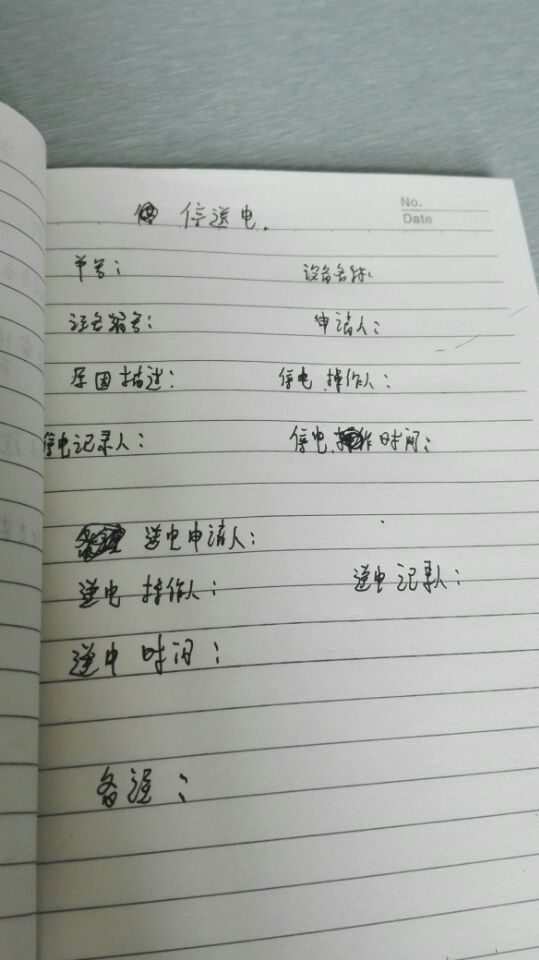 No.
Date
停送电.
单号: 设备名称:
设备编号: 申请人:
原因描述: 停电操作人:
停电记录人: 停电操作时间:
送电申请人:
送电操作人: 送电记录人:
送电时间:
备注: